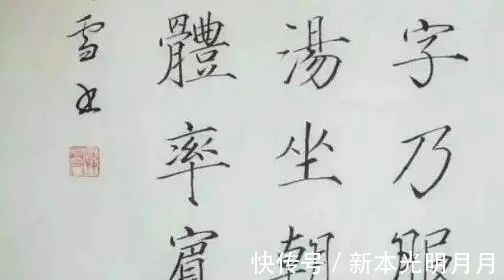 字乃服
湯坐朝
體率賓
雪书
快传号 / 新本光明月月